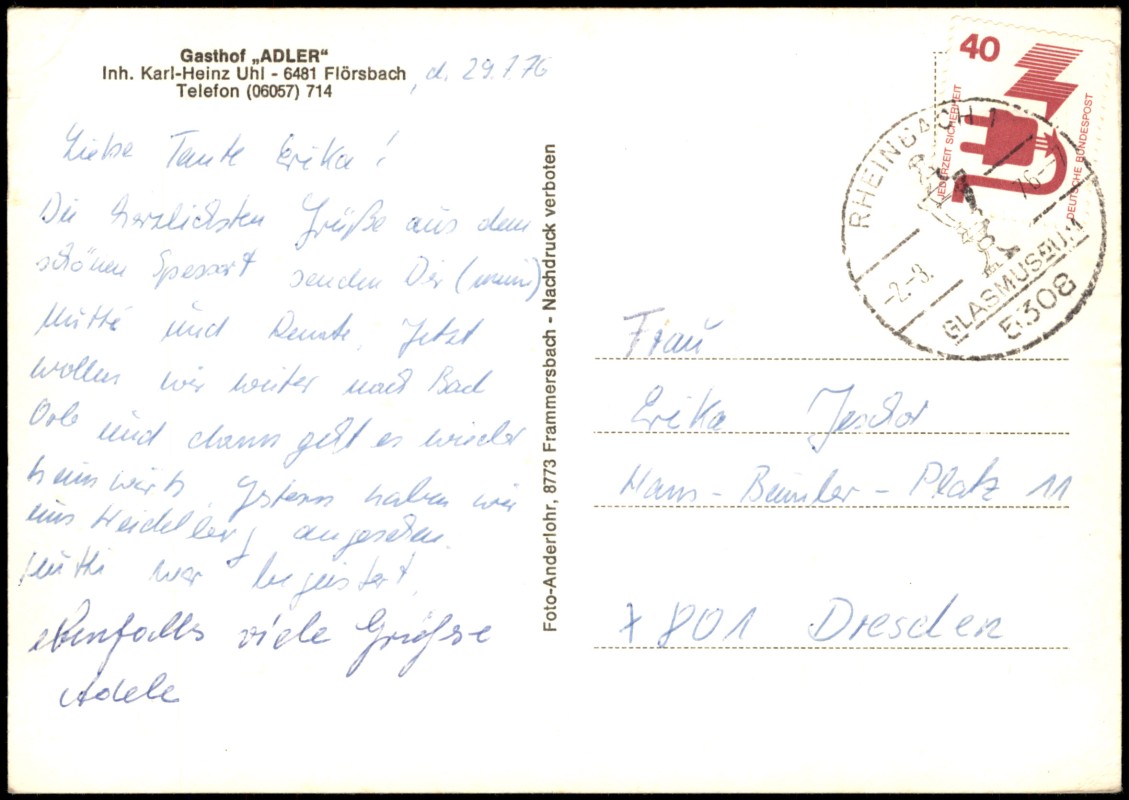 Gasthof „ADLER“
Inh. Karl-Heinz Uhl - 6481 Flörsbach
Telefon (06057) 714
d. 29.7.76
Liebe Tante Erika!
Die herzlichsten Grüße aus dem
schönen Spessart senden Dir
Mutti und Renate. Jetzt
wollen wir weiter nach Bad
Orb und dann geht es wieder
heimwärts. Gestern haben wir
uns Heidelberg angesehen.
Mutti war begeistert.
ebenfalls viele Grüße
Adele
Foto-Anderlohr, 8773 Frammersbach - Nachdruck verboten
40
JEDERZEIT SICHERHEIT
DEUTSCHE BUNDESPOST
RHEINBACH 1
-2.-8. 76-
GLASMUSEUM
5308
Frau
Erika
Hans-Beimler-Platz 11
X 801 Dresden